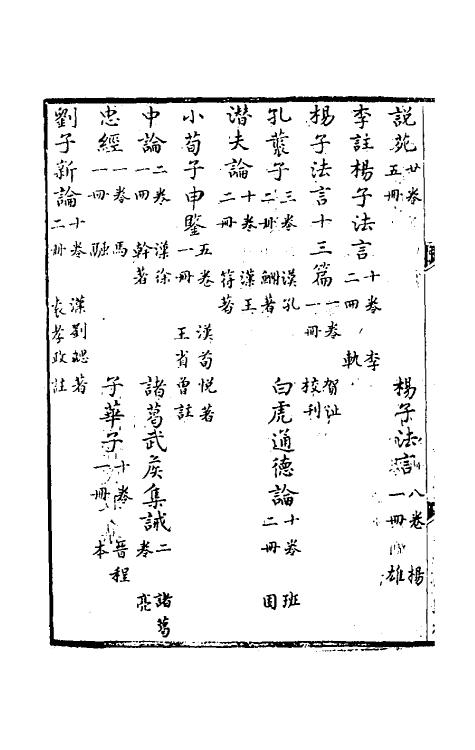 説苑 廿卷 五冊 楊子法言 八卷 一冊 楊雄
李註楊子法言 十卷 二冊 李軌
楊子法言十三篇 一卷 一冊 賀沚校刊
孔叢子 三卷 二冊 漢孔鮒著 白虎通德論 十卷 二冊 班固
潛夫論 十卷 二冊 漢王符著
小荀子申鑒 五卷 一冊 漢荀悅著 王省曾註
中論 二卷 一冊 漢徐幹著 諸葛武侯集誡 二卷 諸葛亮
忠經 一卷 一冊 馬融 子華子 十卷 一冊 晉程本
劉子新論 十卷 二冊 漢劉勰著 袁孝政註